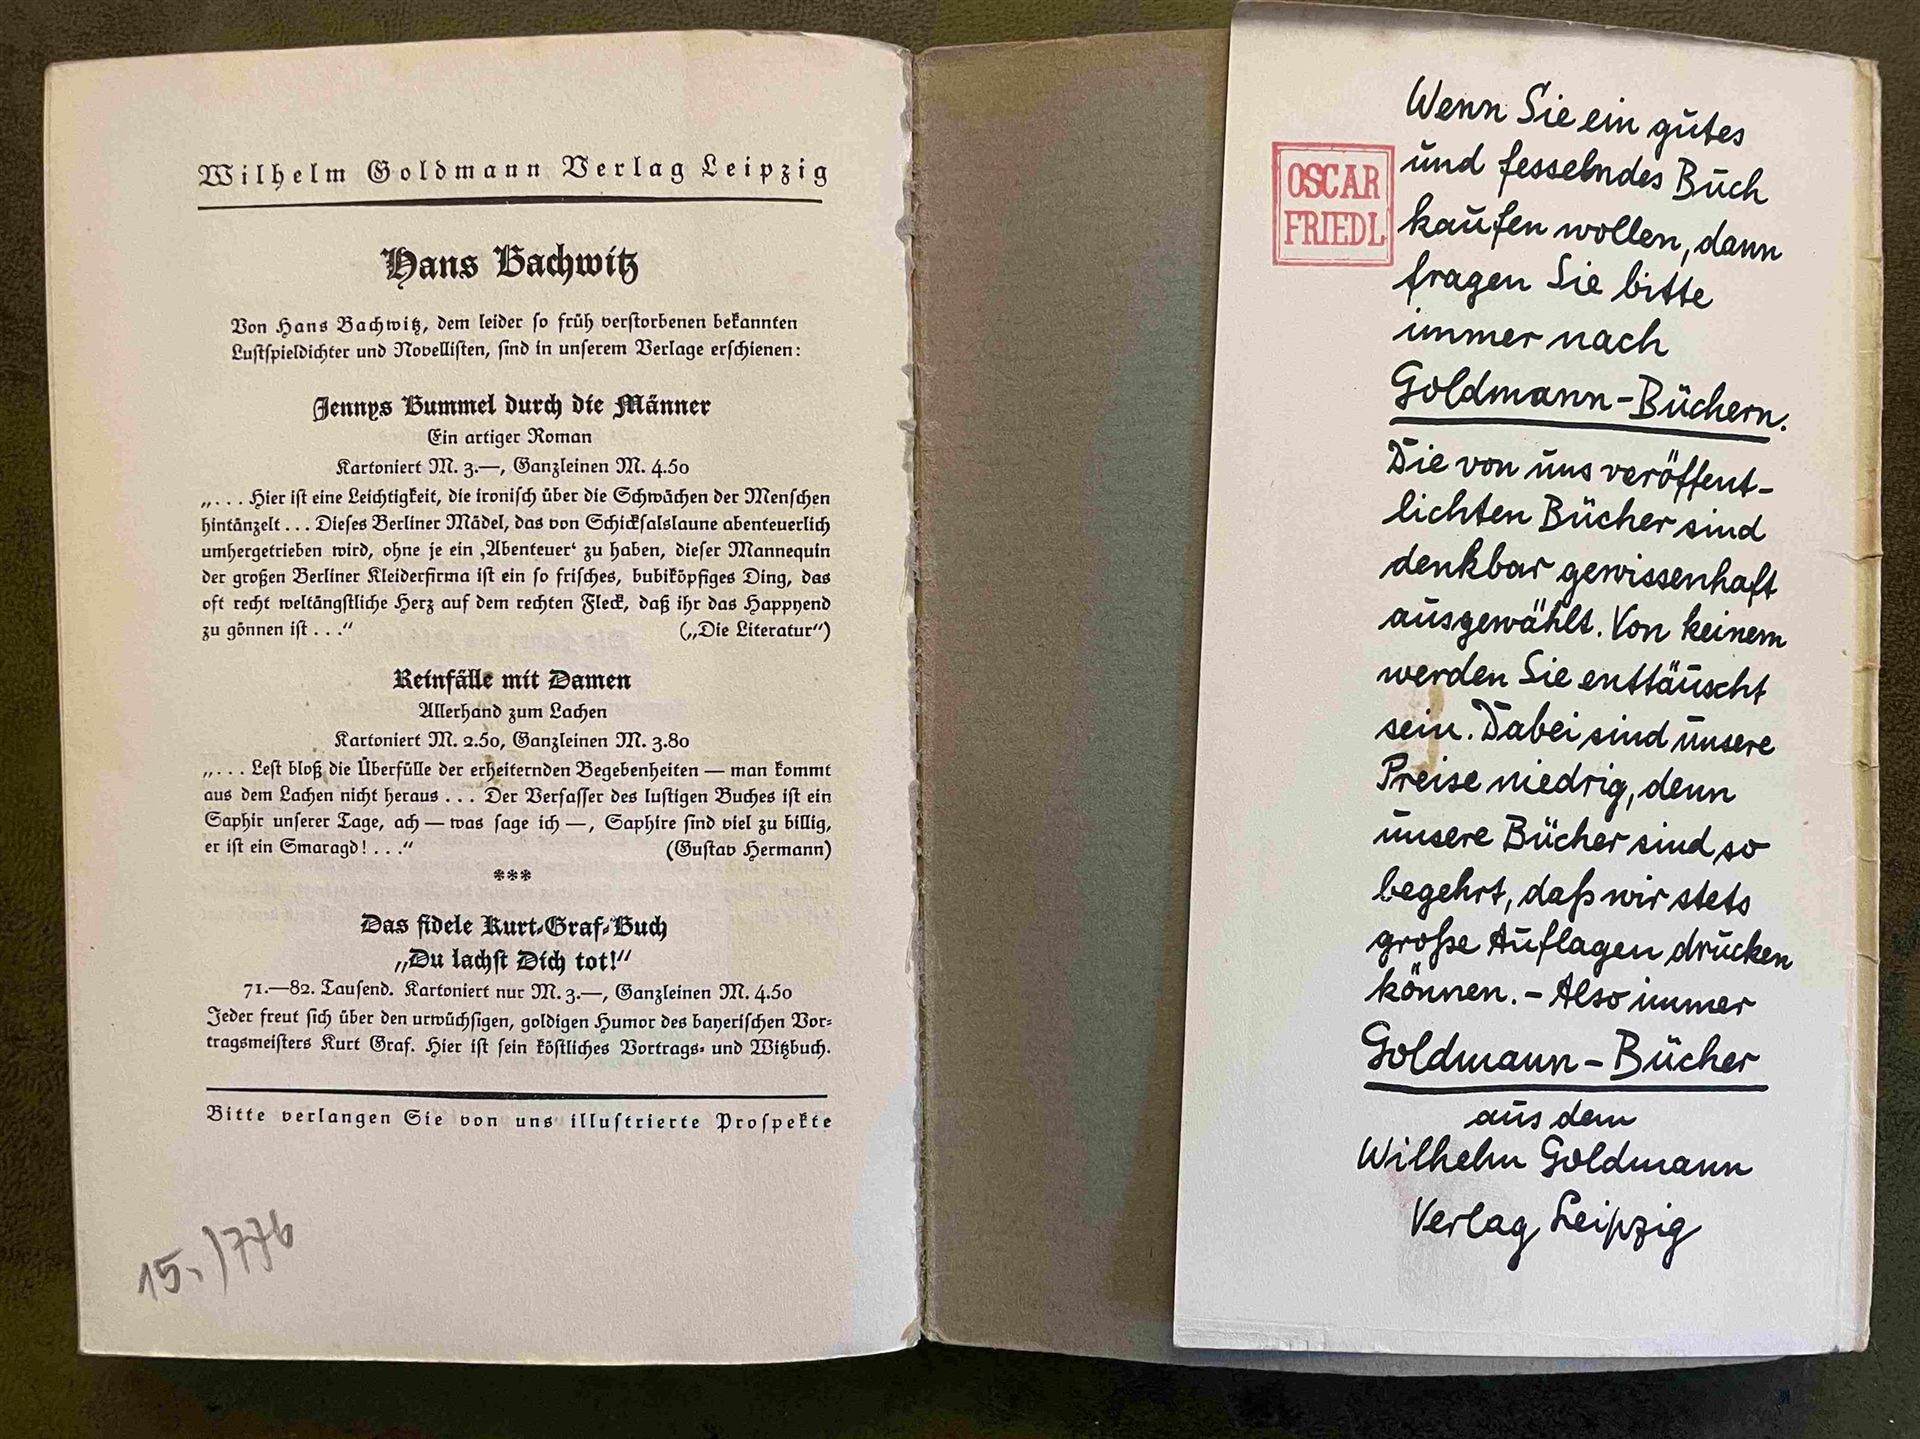 Wilhelm Goldmann Verlag Leipzig
Hans Bachwitz
Von Hans Bachwitz, dem leider so früh verstorbenen bekannten
Lustspieldichter und Novellisten, sind in unserem Verlage erschienen:
Jennys Bummel durch die Männer
Ein artiger Roman
Kartoniert M. 3.—, Ganzleinen M. 4.50
„... Hier ist eine Leichtigkeit, die ironisch über die Schwächen der Menschen
hintänzelt ... Dieses Berliner Mädel, das von Schicksalslaune abenteuerlich
umhergetrieben wird, ohne je ein ‚Abenteuer‘ zu haben, dieser Mannequin
der großen Berliner Kleiderfirma ist ein so frisches, bubiköpfiges Ding, das
oft recht weltängstliche Herz auf dem rechten Fleck, daß ihr das Happyend
zu gönnen ist ...“ („Die Literatur“)
Reinfälle mit Damen
Allerhand zum Lachen
Kartoniert M. 2.50, Ganzleinen M. 3.80
„... Lest bloß die Überfülle der erheiternden Begebenheiten — man kommt
aus dem Lachen nicht heraus ... Der Verfasser des lustigen Buches ist ein
Saphir unserer Tage, ach — was sage ich —, Saphire sind viel zu billig,
er ist ein Smaragd! ...“ (Gustav Hermann)
***
Das fidele Kurt-Graf-Buch
„Du lachst Dich tot!“
71.—82. Tausend. Kartoniert nur M. 3.—, Ganzleinen M. 4.50
Jeder freut sich über den urwüchsigen, goldigen Humor des bayerischen Vor-
tragsmeisters Kurt Graf. Hier ist sein köstliches Vortrags- und Witzbuch.
Bitte verlangen Sie von uns illustrierte Prospekte
15.-/776
OSCAR
FRIEDL
Wenn Sie ein gutes
und fesselndes Buch
kaufen wollen, dann
fragen Sie bitte
immer nach
Goldmann-Büchern.
Die von uns veröffent-
lichten Bücher sind
denkbar gewissenhaft
ausgewählt. Von keinem
werden Sie enttäuscht
sein. Dabei sind unsere
Preise niedrig, denn
unsere Bücher sind so
begehrt, daß wir stets
große Auflagen drucken
können. - Also immer
Goldmann-Bücher
aus dem
Wilhelm Goldmann
Verlag Leipzig